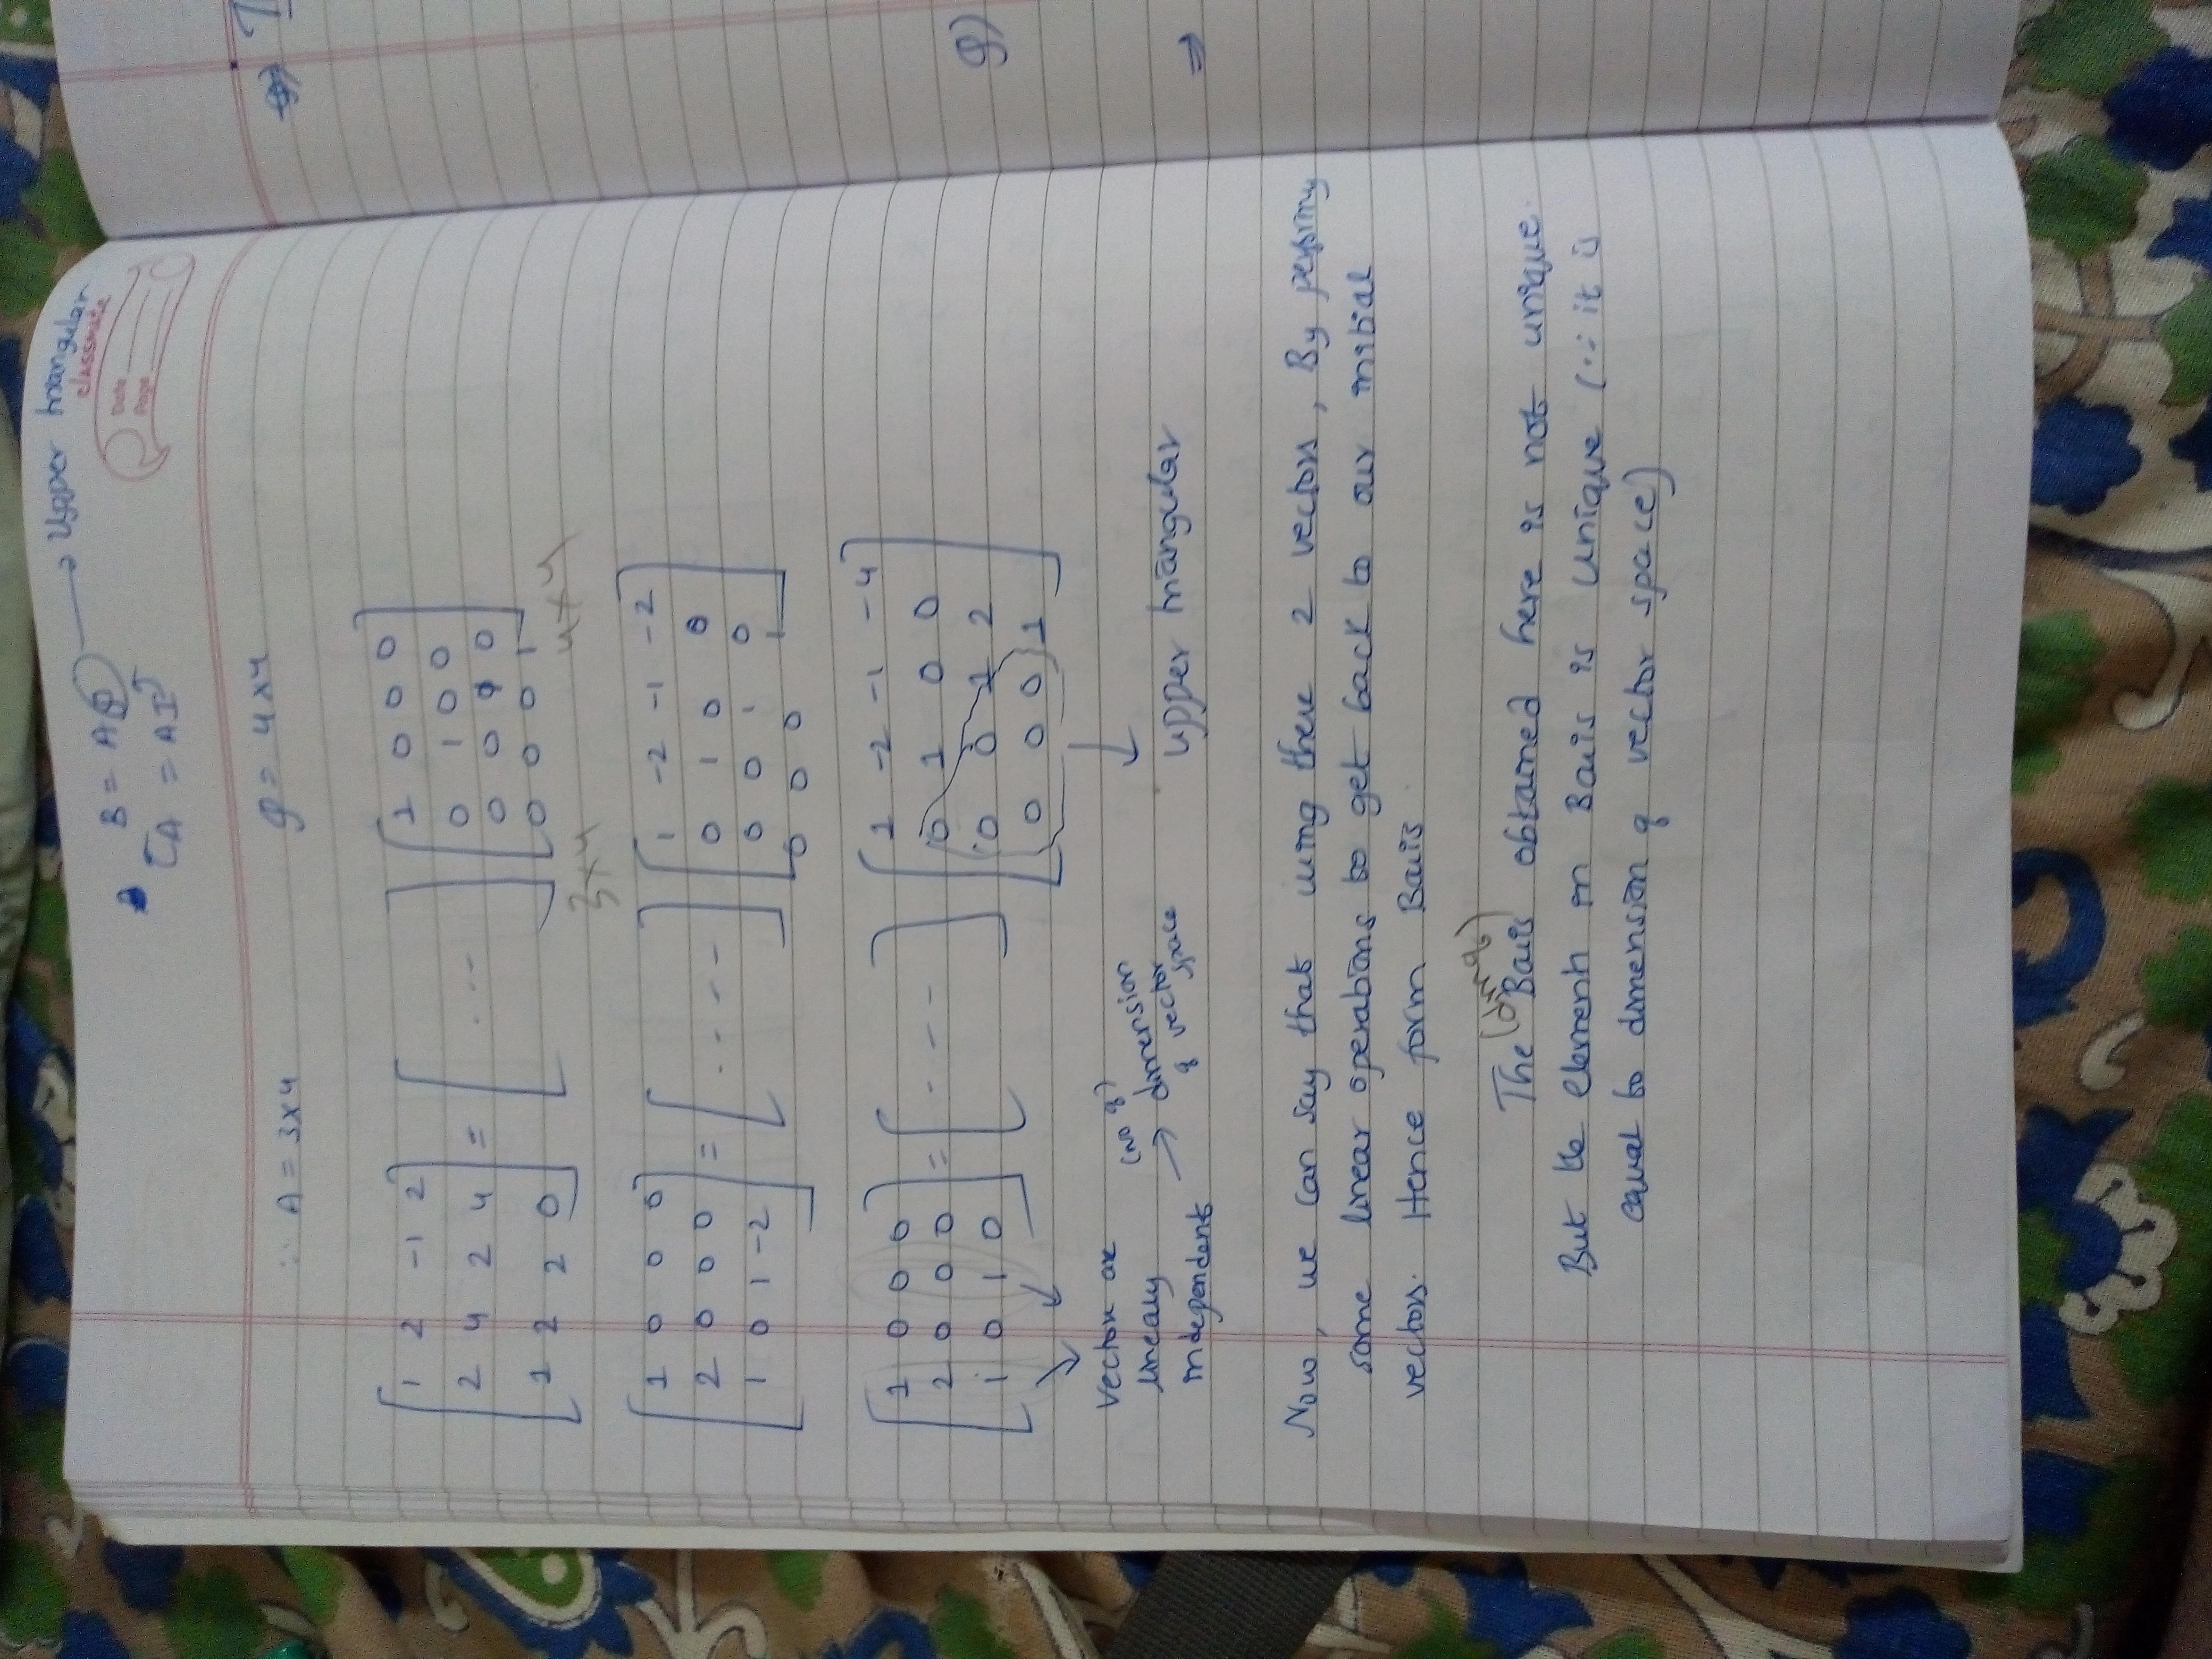 B = AP → Upper triangular
[A = AI]
classmate
Date
Page
∴ A = 3x4 P = 4x4
[1 2 -1 2] [ ] [1 0 0 0]
[2 4 2 4] = [ ... ] [0 1 0 0]
[1 2 2 0] [ ] [0 0 0 0]
[0 0 0 1]
3x4 4x4
[1 0 0 0] [ ] [1 -2 -1 -2]
[2 0 0 0] = [ .... ] [0 1 0 0]
[1 0 1 -2] [ ] [0 0 1 0]
[0 0 0 1]
[1 0 0 0] [ ] [1 -2 -1 -4]
[2 0 0 0] = [ .... ] [0 1 0 0]
[1 0 1 0] [ ] [0 0 1 2]
[0 0 0 1]
Vector are
linealy
independents
(no of)
→ dimension
of vector
space
upper triangular
Now, we can say that using there 2 vectors, By
some linear operations to get back to our initial
vectors. Hence form Basis
The Basis obtained here is not unique.
But the element in Basis is unique (∵ it is
equal to dimension of vector space)
g)
⇒